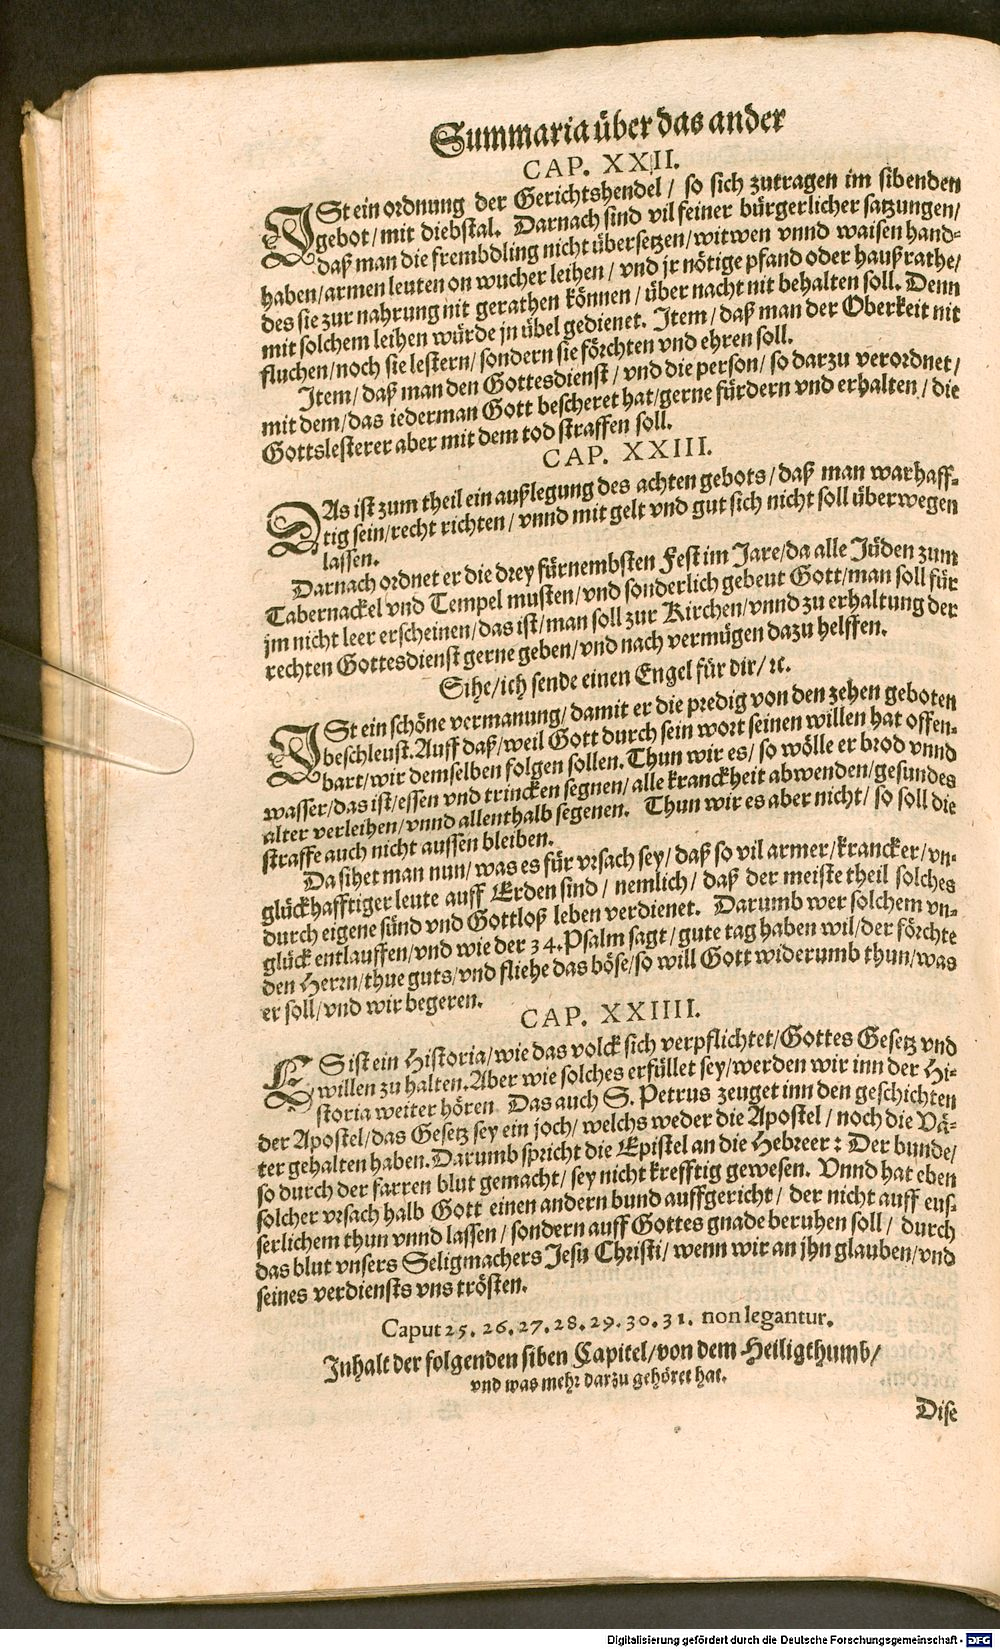 Summaria über das ander
CAP. XXII.
ISt ein ordnung der Gerichtshendel / so sich zutragen im sibenden
gebot / mit diebstal. Darnach sind vil feiner bürgerlicher satzungen /
daß man die frembdling nicht übersetzen / witwen vnnd waisen hand=
haben / armen leuten on wucher leihen / vnd jr nötige pfand oder haußrathe /
des sie zur nahrung nit gerathen können / über nacht nit behalten soll. Denn
mit solchem leihen würde jn übel gedienet. Item / daß man der Oberkeit nit
fluchen / noch sie lestern / sondern sie förchten vnd ehren soll.
Item / daß man den Gottesdienst / vnd die person / so darzu verordnet /
mit dem / das iederman Gott bescheret hat / gerne fürdern vnd erhalten / die
Gottslesterer aber mit dem tod straffen soll.
CAP. XXIII.
DAs ist zum theil ein außlegung des achten gebots / daß man warhaff=
tig sein / recht richten / vnnd mit gelt vnd gut sich nicht soll überwegen
lassen.
Darnach ordnet er die drey fürnembsten Fest im Jare / da alle Jüden zum
Tabernackel vnd Tempel musten / vnd sonderlich gebeut Gott / man soll für
jm nicht leer erscheinen / das ist / man soll zur Kirchen / vnnd zu erhaltung der
rechten Gottesdienst gerne geben / vnd nach vermügen dazu helffen.
Sihe / ich sende einen Engel für dir / ꝛc.
ISt ein schöne vermanung / damit er die predig von den zehen geboten
beschleust. Auff daß / weil Gott durch sein wort seinen willen hat offen=
bart / wir demselben folgen sollen. Thun wir es / so wölle er brod vnnd
wasser / das ist / essen vnd trincken segnen / alle kranckheit abwenden / gesundes
alter verleihen / vnnd allenthalb segenen. Thun wir es aber nicht / so soll die
straffe auch nicht aussen bleiben.
Da sihet man nun / was es für vrsach sey / daß so vil armer / krancker / vn=
glückhafftiger leute auff Erden sind / nemlich / daß der meiste theil solches
durch eigene sünd vnd Gottloß leben verdienet. Darumb wer solchem vn=
glück entlauffen / vnd wie der 34. Psalm sagt / gute tag haben wil / der förchte
den Herrn / thue guts / vnd fliehe das böse / so will Gott widerumb thun / was
er soll / vnd wir begeren.
CAP. XXIIII.
ES ist ein Historia / wie das volck sich verpflichtet / Gottes Gesetz vnd
willen zu halten. Aber wie solches erfüllet sey / werden wir inn der Hi=
storia weiter hören Das auch S. Petrus zeuget inn den geschichten
der Apostel / das Gesetz sey ein joch / welchs weder die Apostel / noch die Vä=
ter gehalten haben. Darumb spricht die Epistel an die Hebreer : Der bunde /
so durch der farren blut gemacht / sey nicht krefftig gewesen. Vnnd hat eben
solcher vrsach halb Gott einen andern bund auffgericht / der nicht auff eus=
serlichem thun vnnd lassen / sondern auff Gottes gnade beruhen soll / durch
das blut vnsers Seligmachers Jesu Christi / wenn wir an jhn glauben / vnd
seines verdiensts vns trösten.
Caput 25. 26. 27. 28. 29. 30. 31. non legantur.
Inhalt der folgenden siben Capitel / von dem Heiligthumb /
vnd was mehr darzu gehöret hat.
Dise
Digitalisierung gefördert durch die Deutsche Forschungsgemeinschaft - DFG